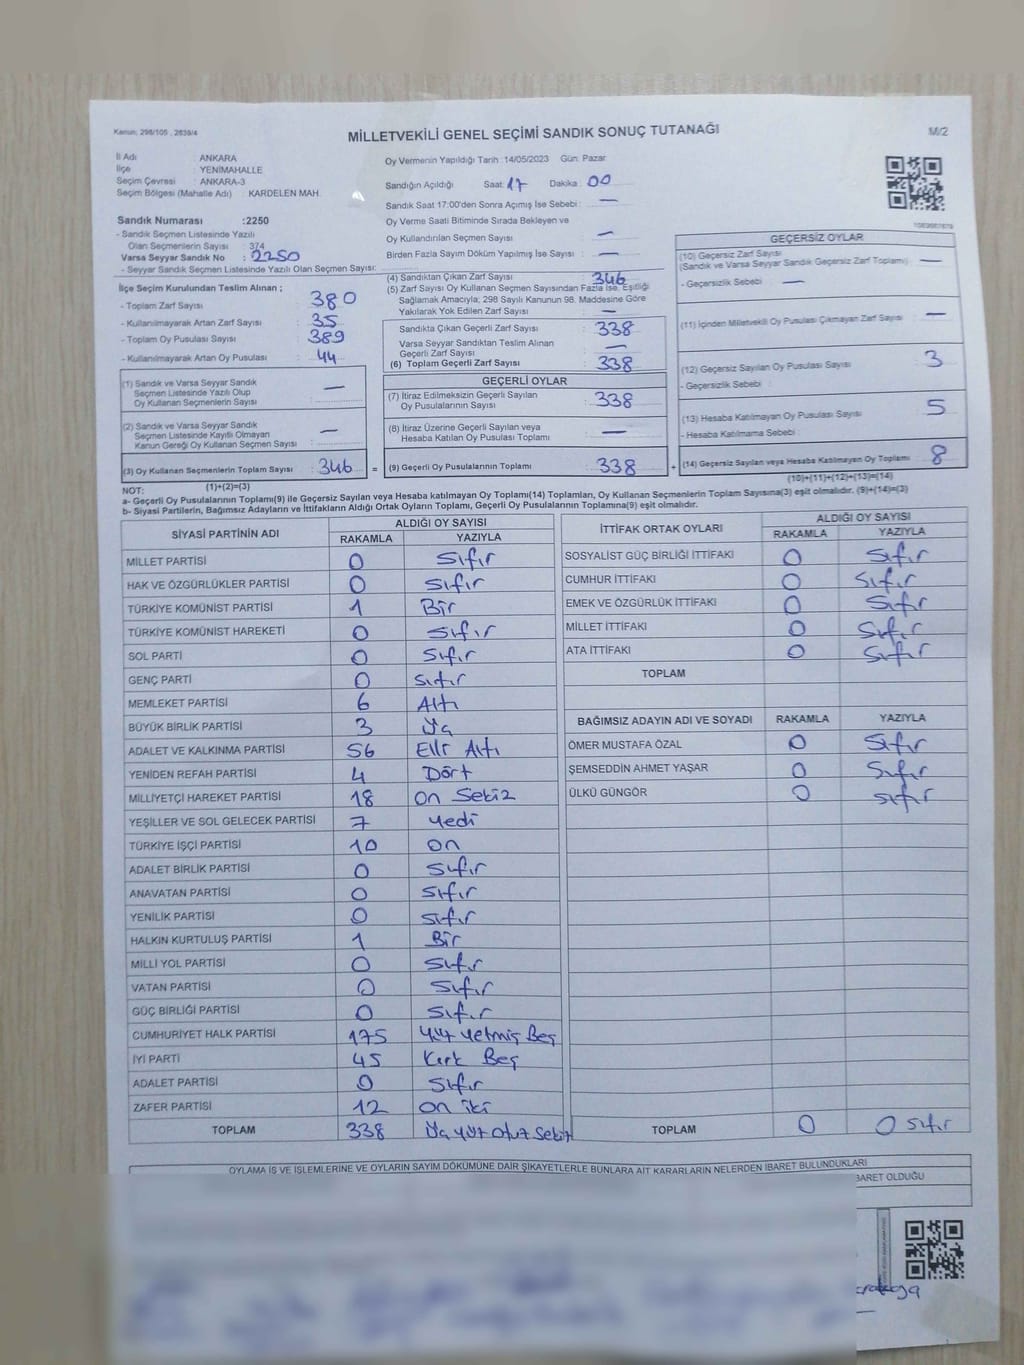 Kanun: 298/105 , 2839/4
MİLLETVEKİLİ GENEL SEÇİMİ SANDIK SONUÇ TUTANAĞI
M/2
İl Adı ANKARA
İlçe YENİMAHALLE
Seçim Çevresi : ANKARA-3
Seçim Bölgesi (Mahalle Adı) : KARDELEN MAH.
Oy Vermenin Yapıldığı Tarih :14/05/2023 Gün: Pazar
Sandığın Açıldığı Saat: 17 Dakika : 00
Sandık Saat 17:00'den Sonra Açımış İse Sebebi : —
Oy Verme Saati Bitiminde Sırada Bekleyen ve
Oy Kullandırılan Seçmen Sayısı : —
Birden Fazla Sayım Döküm Yapılmış İse Sayısı : —
Sandık Numarası :2250
- Sandık Seçmen Listesinde Yazılı
Olan Seçmenlerin Sayısı : 374
Varsa Seyyar Sandık No : 2250
- Seyyar Sandık Seçmen Listesinde Yazılı Olan Seçmen Sayısı:
İlçe Seçim Kurulundan Teslim Alınan ;
- Toplam Zarf Sayısı : 380
- Kullanılmayarak Artan Zarf Sayısı : 35
- Toplam Oy Pusulası Sayısı : 389
- Kullanılmayarak Artan Oy Pusulası : 44
(1) Sandık ve Varsa Seyyar Sandık
Seçmen Listesinde Yazılı Olup
Oy Kullanan Seçmenlerin Sayısı : —
(2) Sandık ve Varsa Seyyar Sandık
Seçmen Listesinde Kayıtlı Olmayan
Kanun Gereği Oy Kullanan Seçmen Sayısı : —
(3) Oy Kullanan Seçmenlerin Toplam Sayısı : 346
(1)+(2)=(3)
(4) Sandıktan Çıkan Zarf Sayısı : 346
(5) Zarf Sayısı Oy Kullanan Seçmen Sayısından Fazla İse, Eşitliği
Sağlamak Amacıyla; 298 Sayılı Kanunun 98. Maddesine Göre
Yakılarak Yok Edilen Zarf Sayısı : —
Sandıkta Çıkan Geçerli Zarf Sayısı : 338
Varsa Seyyar Sandıktan Teslim Alınan
Geçerli Zarf Sayısı : —
(6) Toplam Geçerli Zarf Sayısı : 338
GEÇERLİ OYLAR
(7) İtiraz Edilmeksizin Geçerli Sayılan
Oy Pusulalarının Sayısı : 338
(8) İtiraz Üzerine Geçerli Sayılan veya
Hesaba Katılan Oy Pusulası Toplamı : —
= (9) Geçerli Oy Pusulalarının Toplamı : 338
GEÇERSİZ OYLAR
(10) Geçersiz Zarf Sayısı
(Sandık ve Varsa Seyyar Sandık Geçersiz Zarf Toplamı) : —
- Geçersizlik Sebebi : —
(11) İçinden Milletvekili Oy Pusulası Çıkmayan Zarf Sayısı : —
(12) Geçersiz Sayılan Oy Pusulası Sayısı : 3
- Geçersizlik Sebebi :
(13) Hesaba Katılmayan Oy Pusulası Sayısı : 5
- Hesaba Katılmama Sebebi :
+ (14) Geçersiz Sayılan veya Hesaba Katılmayan Oy Toplamı : 8
(10)+(11)+(12)+(13)=(14)
NOT:
a- Geçerli Oy Pusulalarının Toplamı(9) ile Geçersiz Sayılan veya Hesaba katılmayan Oy Toplamı(14) Toplamları, Oy Kullanan Seçmenlerin Toplam Sayısına(3) eşit olmalıdır. (9)+(14)=(3)
b- Siyasi Partilerin, Bağımsız Adayların ve İttifakların Aldığı Ortak Oyların Toplamı, Geçerli Oy Pusulalarının Toplamına(9) eşit olmalıdır.
SİYASİ PARTİNİN ADI ALDIĞI OY SAYISI
RAKAMLA YAZIYLA
MİLLET PARTİSİ 0 Sıfır
HAK VE ÖZGÜRLÜKLER PARTİSİ 0 Sıfır
TÜRKİYE KOMÜNİST PARTİSİ 1 Bir
TÜRKİYE KOMÜNİST HAREKETİ 0 Sıfır
SOL PARTİ 0 Sıfır
GENÇ PARTİ 0 Sıfır
MEMLEKET PARTİSİ 6 Altı
BÜYÜK BİRLİK PARTİSİ 3 Üç
ADALET VE KALKINMA PARTİSİ 56 Elli Altı
YENİDEN REFAH PARTİSİ 4 Dört
MİLLİYETÇİ HAREKET PARTİSİ 18 On Sekiz
YEŞİLLER VE SOL GELECEK PARTİSİ 7 Yedi
TÜRKİYE İŞÇİ PARTİSİ 10 On
ADALET BİRLİK PARTİSİ 0 Sıfır
ANAVATAN PARTİSİ 0 Sıfır
YENİLİK PARTİSİ 0 Sıfır
HALKIN KURTULUŞ PARTİSİ 1 Bir
MİLLİ YOL PARTİSİ 0 Sıfır
VATAN PARTİSİ 0 Sıfır
GÜÇ BİRLİĞİ PARTİSİ 0 Sıfır
CUMHURİYET HALK PARTİSİ 175 Yüz Yetmiş Beş
İYİ PARTİ 45 Kırk Beş
ADALET PARTİSİ 0 Sıfır
ZAFER PARTİSİ 12 On iki
TOPLAM 338 Üç yüz Otuz Sekiz
İTTİFAK ORTAK OYLARI ALDIĞI OY SAYISI
RAKAMLA YAZIYLA
SOSYALİST GÜÇ BİRLİĞİ İTTİFAKI 0 Sıfır
CUMHUR İTTİFAKI 0 Sıfır
EMEK VE ÖZGÜRLÜK İTTİFAKI 0 Sıfır
MİLLET İTTİFAKI 0 Sıfır
ATA İTTİFAKI 0 Sıfır
TOPLAM
BAĞIMSIZ ADAYIN ADI VE SOYADI RAKAMLA YAZIYLA
ÖMER MUSTAFA ÖZAL 0 Sıfır
ŞEMSEDDİN AHMET YAŞAR 0 Sıfır
ÜLKÜ GÜNGÖR 0 Sıfır
TOPLAM 0 0 Sıfır
OYLAMA İŞ VE İŞLEMLERİNE VE OYLARIN SAYIM DÖKÜMÜNE DAİR ŞİKAYETLERLE BUNLARA AİT KARARLARIN NELERDEN İBARET BULUNDUKLARI
BARET OLDUĞU